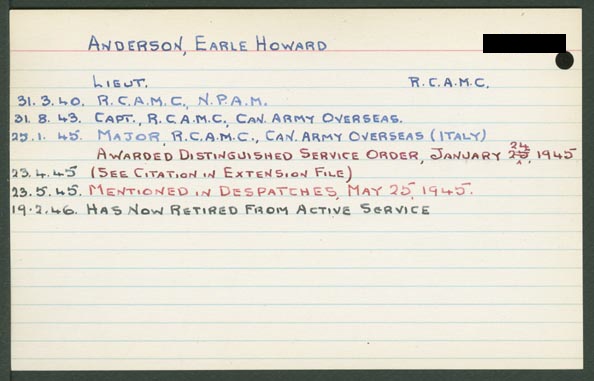 ANDERSON, EARLE HOWARD
LIEUT. R.C.A.M.C.
31.3.40. R.C.A.M.C., N.P.A.M.
31.8.43. CAPT., R.C.A.M.C., CAN. ARMY OVERSEAS.
25.1.45. MAJOR, R.C.A.M.C., CAN. ARMY OVERSEAS (ITALY)
24
AWARDED DISTINGUISHED SERVICE ORDER, JANUARY 25, 1945
23.4.45 (SEE CITATION IN EXTENSION FILE)
23.5.45. MENTIONED IN DESPATCHES, MAY 25, 1945.
19.2.46. HAS NOW RETIRED FROM ACTIVE SERVICE